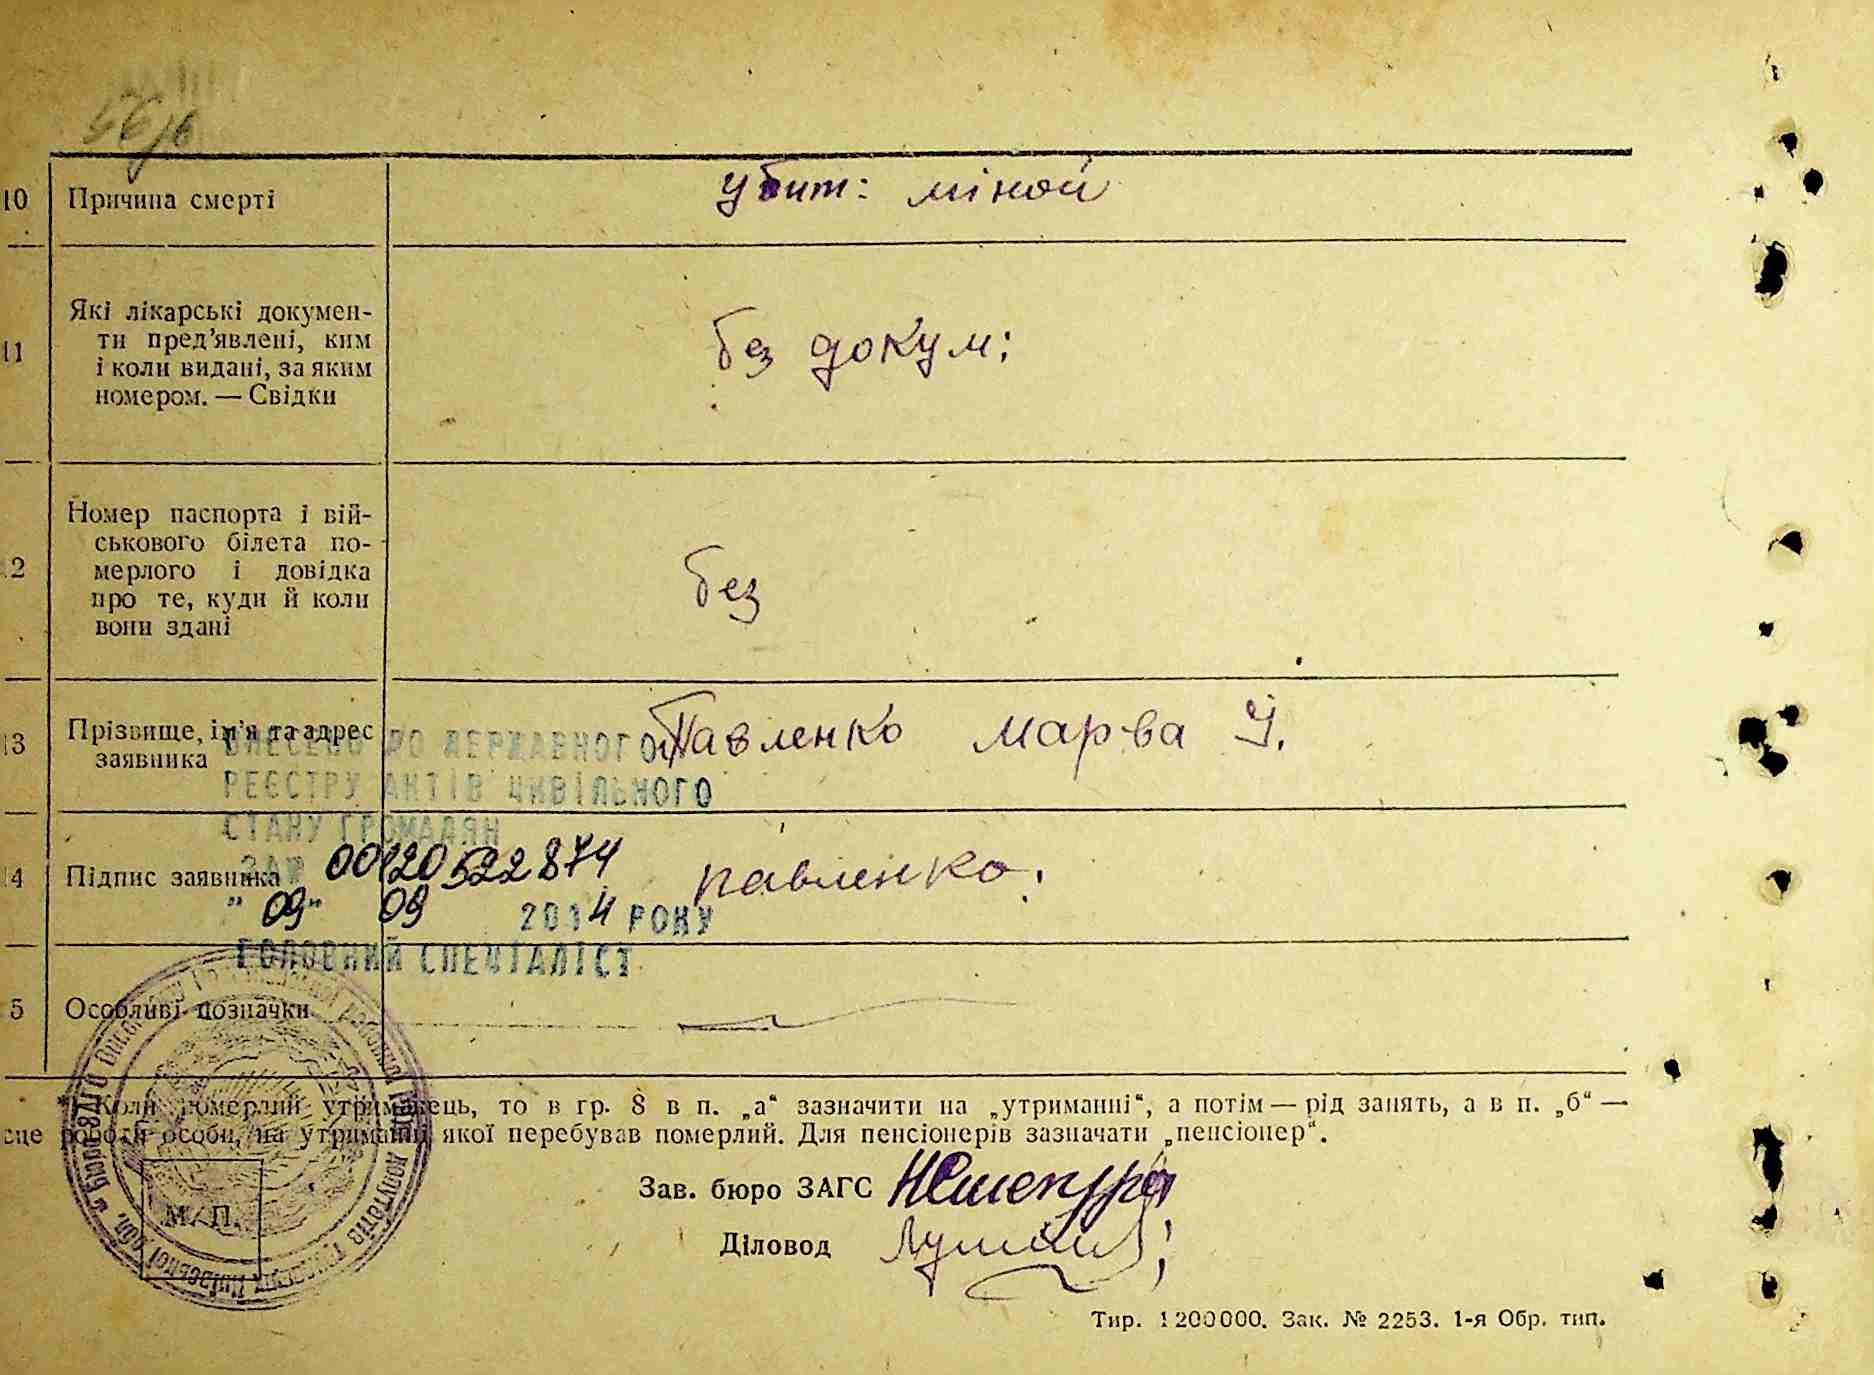 10 Причина смерті убит: міной
11 Які лікарські докумен-
ти пред'явлені, ким
і коли видані, за яким
номером. — Свідки
без докум:
2 Номер паспорта і вій-
ськового білета по-
мерлого і довідка
про те, куди й коли
вони здані
без
13 Прізвище, ім'я та адрес
заявника
Павленко Марва У.
ВНЕСЕНО ДО ДЕРЖАВНОГО
РЕЄСТРУ АКТІВ ЦИВІЛЬНОГО
СТАНУ ГРОМАДЯН
ЗА № 00120522874
14 Підпис заявника павленко.
"09" 09 2014 РОКУ
ГОЛОВНИЙ СПЕЦІАЛІСТ
5 Особливі позначки
* Коли померлий утриманець, то в гр. 8 в п. „а“ зазначити на „утриманні“, а потім — рід занять, а в п. „б“ —
сце роботи особи, на утриманні якої перебував померлий. Для пенсіонерів зазначати „пенсіонер“.
Зав. бюро ЗАГС
М. П.
Діловод
Тир. 1200000. Зак. № 2253. 1-я Обр. тип.